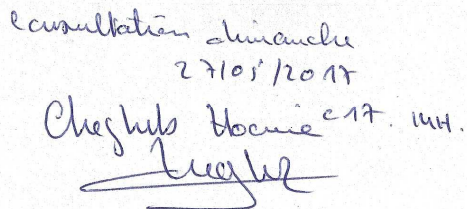 consultation dimanche
27/05/2017
Cheghib Hocine c17. 14H.